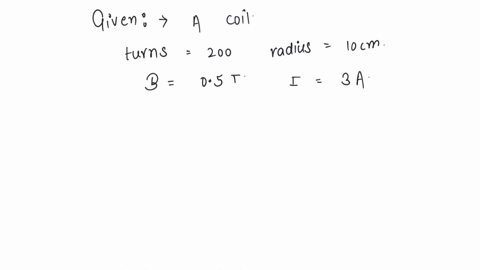 Given: → A coil.
turns = 200 radius = 10 cm.
B = 0.5 T. I = 3 A.